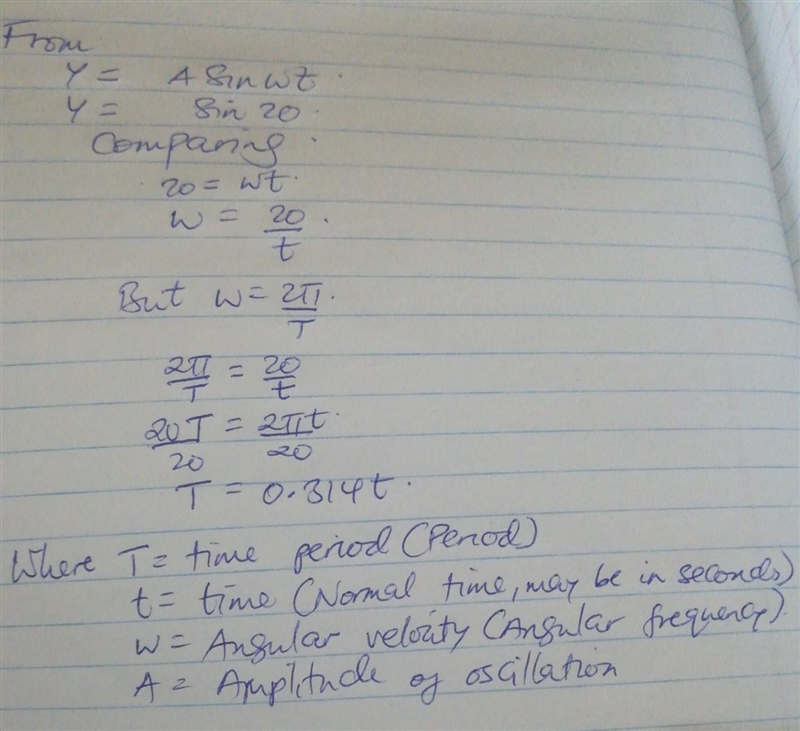 From
Y = A Sin wt.
Y = Sin 20.
Comparing.
20 = wt.
w = 20/t.
But w = 2π/T.
2π/T = 20/t
20T/20 = 2πt/20
T = 0.314t.
Where T = time period (Period)
t = time (Normal time, may be in seconds)
w = Angular velocity (Angular frequency).
A = Amplitude of oscillation